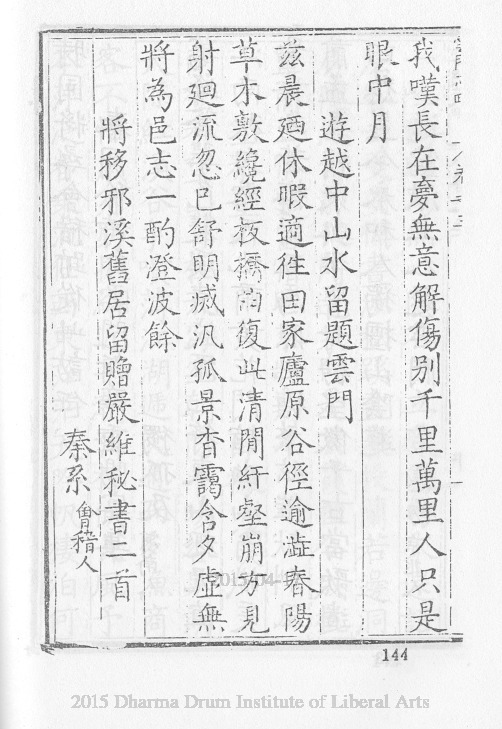 我嘆長在夢無意解傷別千里萬里人只是
眼中月
遊越中山水留題雲門
茲晨廼休暇適徃田家廬原谷徑逾澁春陽
草木敷纔經板橋復此清閒紆壑崩方見
射廻流忽已舒明滅汎孤景杳靄含夕虛無
將為邑志一酌澄波餘
將移邪溪舊居留贈嚴維秘書二首
秦系會稽人
144
2015 Dharma Drum Institute of Liberal Arts